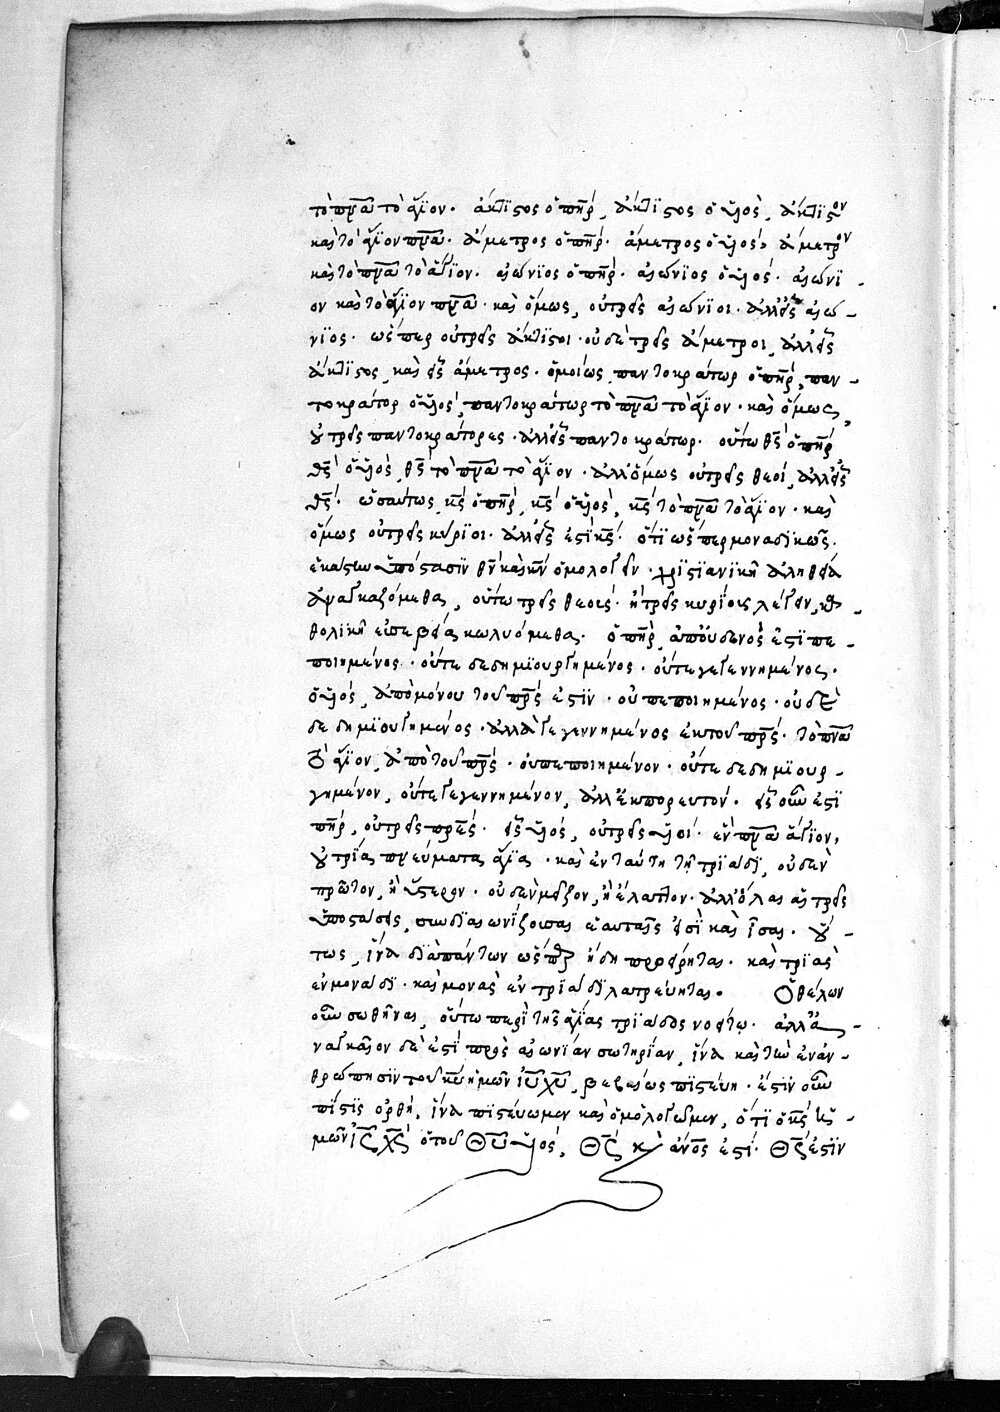 το πνᾶ το ἅγϊον. ἄκτϊστος ὁ πηρ, ἄκτϊστος ὁ υἱος, ἄκτϊστον
καὶ το ἅγϊον πνᾶ. ἄμετρος ὁ πηρ. ἄμετρος ὁ υἱος· ἄμετρον
καὶ το πνᾶ το ἅγϊον. αἰώνϊος ὁ πηρ. αἰώνϊος ὁ υἱος. αἰώνϊ-
ον καὶ το ἅγϊον πνᾶ. καὶ ὅμως, οὐ τρεῖς αἰώνϊοι. ἀλλεῖς αἰώ-
νϊος. ὥσπερ οὐ τρεῖς ἄκτϊστοι. οὐδὲ τρεῖς ἄμετροι, ἀλλεῖς
ἄκτϊστος, καὶ εἷς ἄμετρος. ὁμοίως παντοκράτωρ ὁ πηρ, παν-
τοκράτορ ὁ υἱος, παντοκράτωρ το πνᾶ το ἅγϊον. καὶ ὅμως,
οὐ τρεῖς παντοκράτορες. ἀλλεῖς παντοκράτωρ. οὕτω θς ὁ πηρ
θς ὁ υἱος, θς το πνᾶ το ἅγϊον. ἀλλ ὅμως οὐ τρεῖς θεοι, ἀλλεῖς
θς. ὡσαύτως κς ὁ πηρ, κς ὁ υἱος, κς το πνᾶ το ἅγϊον. καὶ
ὅμως οὐ τρεῖς κύρϊοι. ἀλλεῖς ἐστὶ κς. ὅτϊ ὥσπερ μοναδϊκῶς
ἑκάστω ὑπόστασϊν θν καὶ κν ὁμολογεῖν. χρϊστϊανϊκῆ ἀληθεία
ἀναγκαζόμεθα, οὕτω τρεῖς θεοὺς. ἢ τρεῖς κυρίους λέγειν, κα-
θολϊκῆ εὐσεβεία κωλυόμεθα. ὁ πηρ, ἀπ οὐδενός ἐστι πε-
ποιημένος. οὔτε δεδημϊουργημένος. οὔτε γεγεννημένος.
ὁ υἱος, ἀπο μόνου του πρς ἐστϊν. οὐ πεποιημένος. οὐδὲ
δεδημϊουργημένος. ἀλλὰ γεγεννημένος ἐκ του πρς. το πνᾶ
το ἅγϊον, ἀπο του πρς. οὐ πεποιημένον. οὔτε δεδημϊουρ-
γημένον, οὔτε γεγεννημένον, ἀλλ ἐκπορευτόν. εἷς οὖν ἐστϊ
πηρ, οὐ τρεῖς πρες. εἷς υἱος, οὐ τρεῖς υἱοί. ἓν πνᾶ ἅγϊον,
οὐ τρία πνεύματα ἅγϊα. καὶ ἐν ταύτη τῆ τρϊάδϊ, οὐδὲν
πρῶτον, ἢ ὕστερον. οὐδὲν μεῖζον, ἢ ἔλαττον. ἀλλ ὅλαι αἱ τρεῖς
ὑποστάσεις, συνδϊαιωνίζουσαι ἑαυταῖς εἰσὶ καὶ ἴσαι. οὕ-
τως, ἵνα δϊὰ πάντων ὥσπερ ἤδη προείρηται. καὶ τρϊὰς
ἐν μονάδϊ. καὶ μονὰς ἐν τρϊάδϊ λατρεύηται. Ὁ θέλων
οὖν σωθῆναι, οὕτω περὶ τῆς ἁγίας τρϊάδος νοείτω. ἀλλὰ ἀ-
ναγκαῖον δὲ ἐστὶ πρὸς αἰωνίαν σωτηρίαν, ἵνα καὶ τὴν ἐναν-
θρώπησϊν του κυ ἡμῶν ἰυ χυ, βεβαίως πϊστεύη. ἔστϊν οὖν
πίστϊς ὀρθὴ, ἵνα πϊστεύωμεν καὶ ὁμολογῶμεν, ὅτϊ ὁ κς ἡ-
μῶν ἰς χς ὁ του Θυ υἱος, Θς καὶ ἀνος ἐστί. Θς ἐστϊν